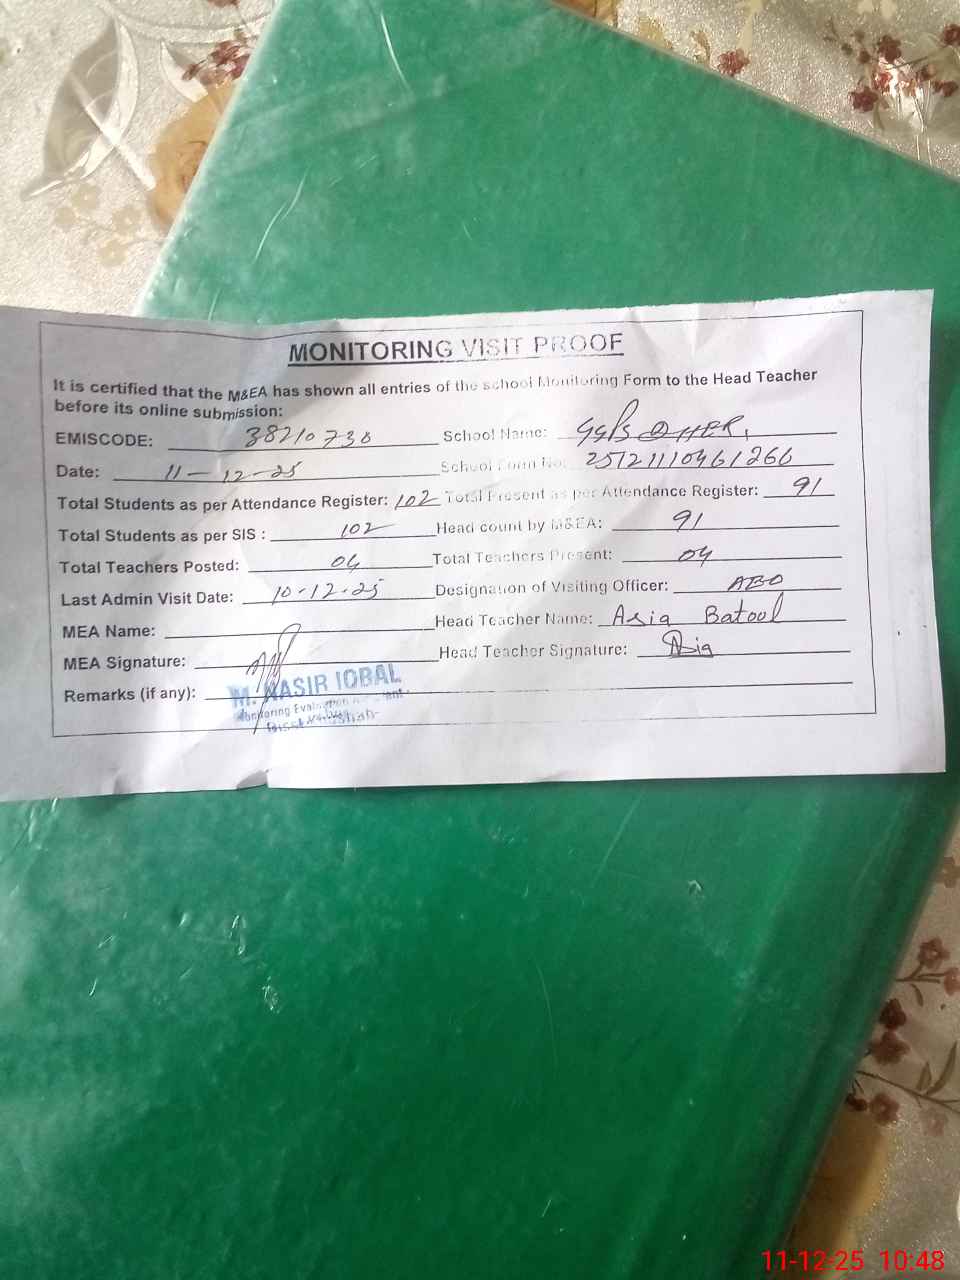 MONITORING VISIT PROOF
It is certified that the M&EA has shown all entries of the school Monitoring Form to the Head Teacher
before its online submission:
EMISCODE: 38210730 School Name: GGPS
Date: 11-12-25 School Form No: 25121110461266
Total Students as per Attendance Register: 102 Total Present as per Attendance Register: 91
Total Students as per SIS : 102 Head count by M&EA: 91
Total Teachers Posted: 04 Total Teachers Present: 04
Last Admin Visit Date: 10-12-25 Designation of Visiting Officer: AEO
MEA Name: Head Teacher Name: Asia Batool
MEA Signature: Head Teacher Signature: Asia
Remarks (if any):
M. NASIR IQBAL
Monitoring Evaluation
11-12-25 10:48